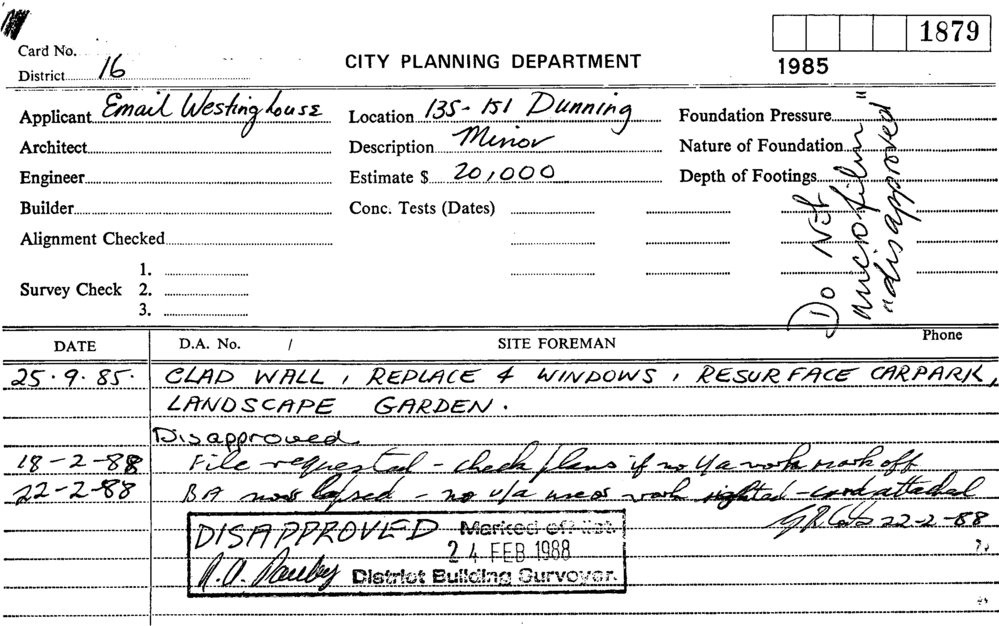 Card No.
1879
District 16
CITY PLANNING DEPARTMENT
1985
Applicant Email Westinghouse
Location 135-151 Dunning
Foundation Pressure
Architect
Description Minor
Nature of Foundation
Engineer
Estimate $ 20,000
Depth of Footings
Builder
Conc. Tests (Dates)
Alignment Checked
Survey Check
1.
2.
3.
Do Not
microfilm
"disapproved"
Phone
DATE
D.A. No. /
SITE FOREMAN
25.9.85. CLAD WALL, REPLACE 4 WINDOWS, RESURFACE CARPARK,
LANDSCAPE GARDEN.
Disapproved
18-2-88 File requested - check plans if no u/a work mark off
22-2-88 BA now lapsed - no u/a use or work sighted - card attached
22-2-88
DISAPPROVED Marked off list
24 FEB 1988
District Building Surveyor.